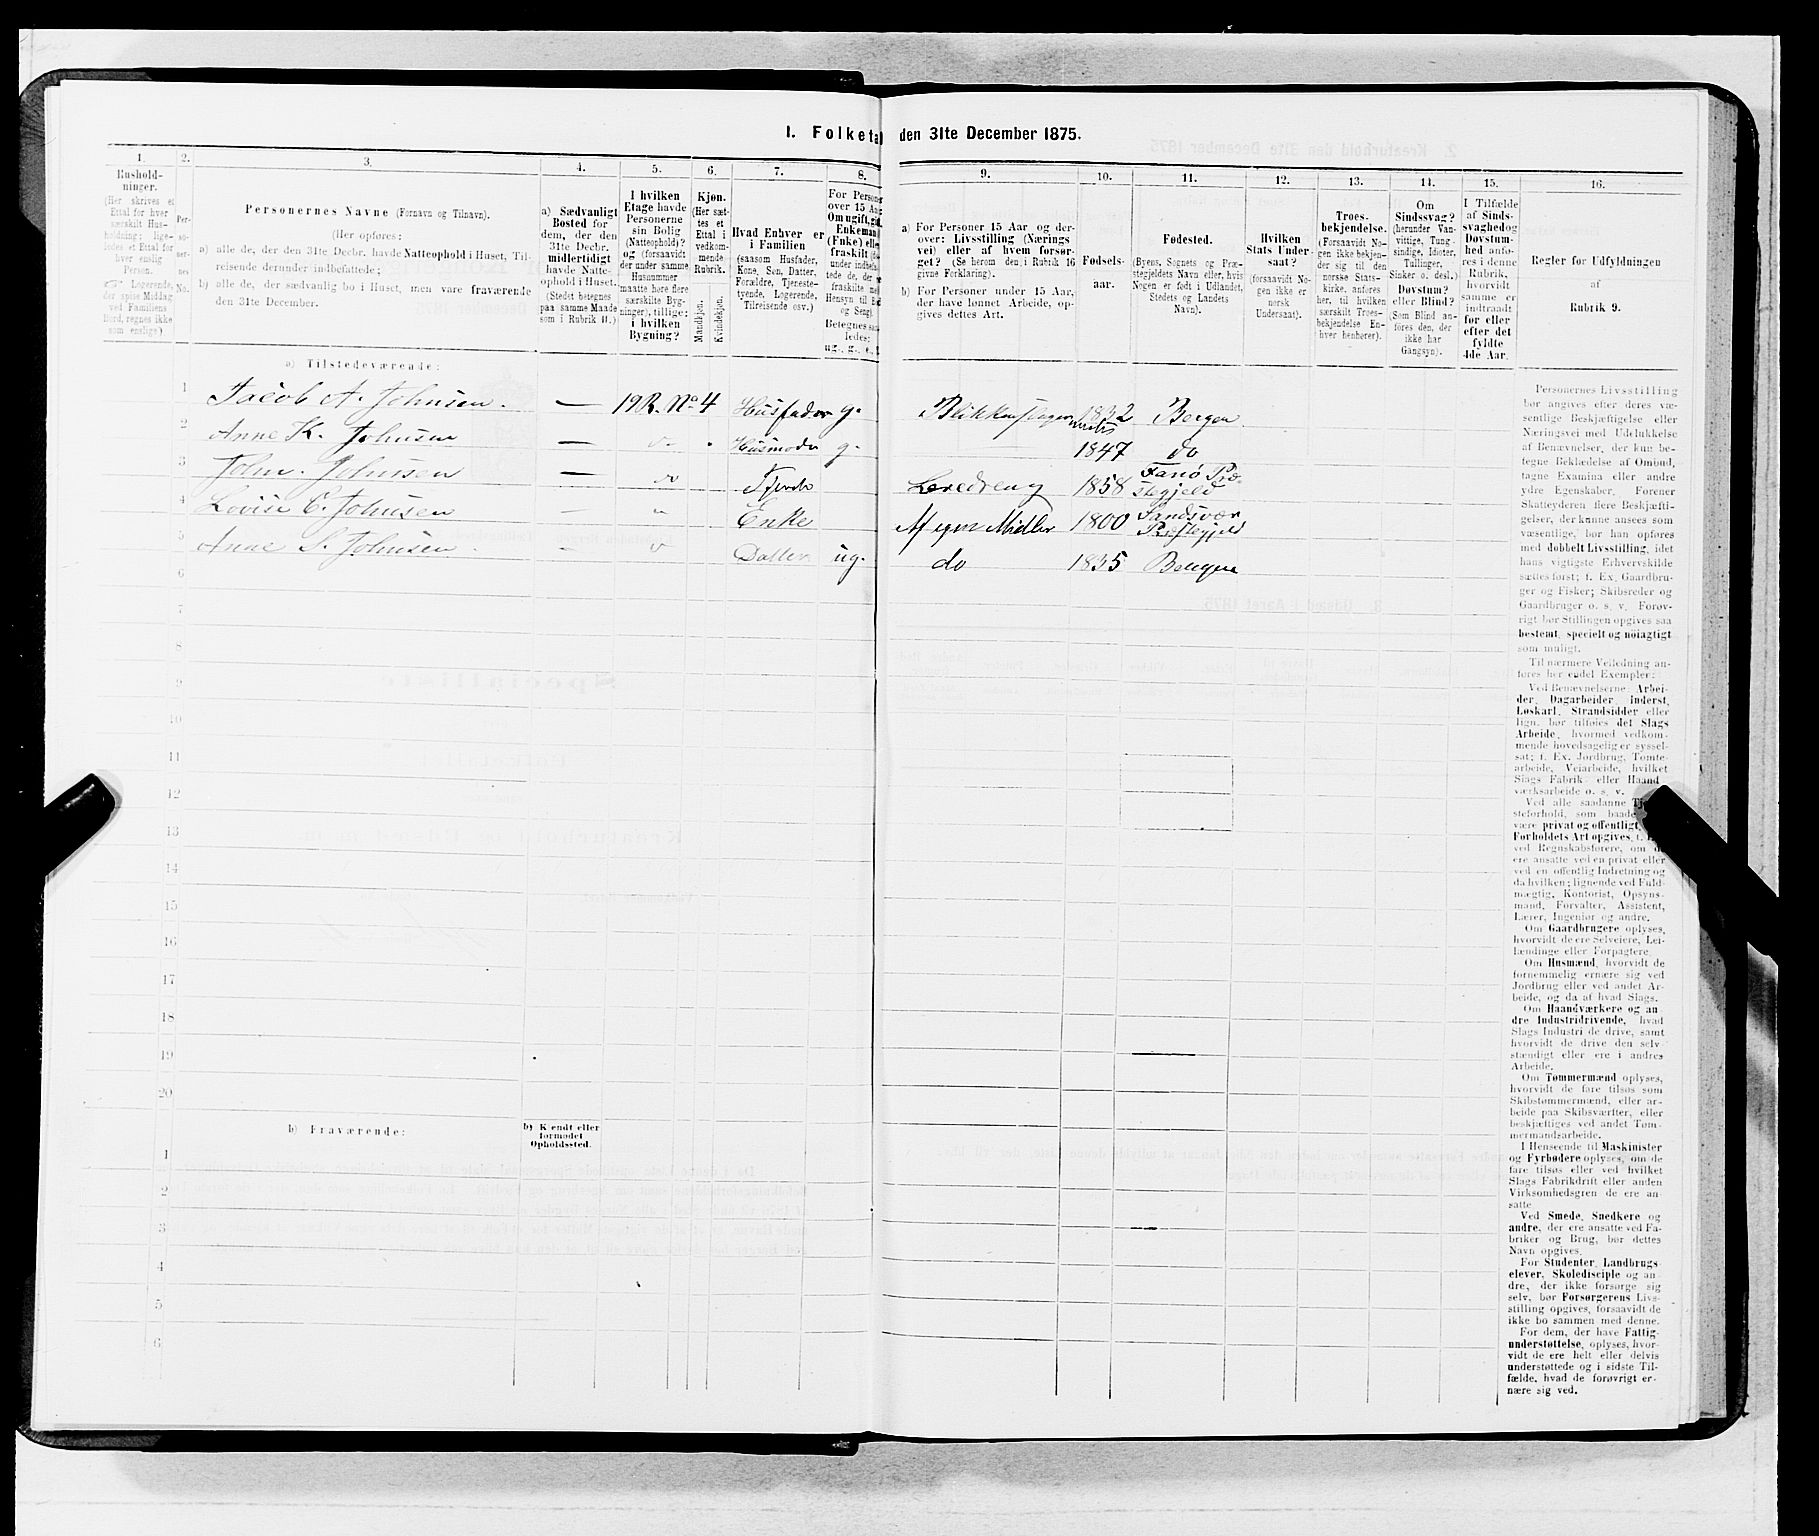 I. Folketal den 31te December 1875.
1. 2. 3. 4. 5. 6. 7. 8. 9. 10. 11. 12. 13. 14. 15. 16.
Husholdninger.
(Her skrives et
Ettal for hver
særskilt Hus-
holdning; lige-
ledes et Ettal for
hver enslig
Person.
☞ Logerende,
der spise Middag
ved Familiens
Bord, regnes ikke
som enslige.)
Per-
so-
ner-
nes
No.
Personernes Navne (Fornavn og Tilnavn).
(Her opføres:
a) alle de, der den 31te Decbr. havde Natteophold i Huset, Til-
reisende derunder indbefattede;
b) alle de, der sædvanlig bo i Huset, men vare fraværende
den 31te December.
a) Sædvanligt
Bosted for
dem, der den
31te Decbr.
midlertidigt
havde Natte-
ophold i Huset.
(Stedet betegnes
paa samme Maade
som i Rubrik 11.)
I hvilken
Etage havde
Personerne
sin Bolig
(Natteophold)?
og (forsaavidt
der under samme
Husnummer
maatte høre flere
særskilte Byg-
ninger), tillige:
i hvilken
Bygning?
Kjøn.
(Her sæt-
tes et
Ettal i
vedkom-
mende
Rubrik.
Mandkjøn.
Kvindekjøn.
Hvad Enhver er
i Familien
(saasom Husfader,
Kone, Søn, Datter,
Forældre, Tjeneste-
tyende, Logerende,
Tilreisende osv.)
For Personer
over 15 Aar:
Om ugift, gift,
Enkemand
(Enke) eller
fraskilt
under indbefat-
tede de, der ere
fraskilte med
Hensyn til Bord
og Seng).
Betegnes saa-
ledes:
ug., g., e., f.
a) For Personer 15 Aar og der-
over: Livsstilling (Nærings-
vei) eller af hvem forsør-
get? (Se herom den i Rubrik 16
givne Forklaring).
b) For Personer under 15 Aar,
der have lønnet Arbeide, op-
gives dettes Art.
Fødsels-
aar.
Fødested.
(Byens, Sognets og Præ-
stegjeldets Navn eller, hvis
Nogen er født i Udlandet,
Stedets og Landets
Navn).
Hvilken
Stats Under-
saat?
(forsaavidt No-
gen ikke er
norsk
Undersaat).
Troes-
bekjendelse.
(Forsaavidt No-
gen ikke bekjen-
der sig til den
norske Stats-
kirke, anføres
her, til hvilken
særskilt Troes-
bekjendelse En-
hver henhører).
Om
Sindssvag?
(herunder Van-
vittige, Tung-
sindige, Idioter,
Tullinger,
Sinker o. desl.)
Døvstum?
eller Blind?
(Som Blind an-
føres den, der
ikke har
Gangsyn).
I Tilfælde
af Sinds-
svaghed og
Døvstum-
hed anfø-
res i denne
Rubrik,
hvorvidt
samme er
indtraadt
før eller
efter det
fyldte
4de Aar.
Regler for Udfyldningen
af
Rubrik 9.
a) Tilstedeværende:
1 Jacob A. Johnsen. — 19 R. No 4 Husfader g. Blikkenslager 1832 Bergen
2 Anne K. Johnsen — Husmoder g. 1847 do
3 John. Johnsen — Læredreng 1858 Fanø Præ-
stegjeld
4 Lovise C. Johnsen — " Enke Af egne Midler 1800 Sandsvær
Præstegjeld
5 Anne S. Johnsen — Datter ug. do 1835 Bergen
6
7
8
9
10
11
12
13
14
15
16
17
18
19
20
b) Fraværende:
b) Kjendt eller
formodet
Opholdssted.
1
2
3
4
5
6
Personernes Livsstilling
bør angives efter deres væ-
sentlige Beskjæftigelse eller
Næringsvei med Udelukkelse
af Benævnelser, der kun be-
tegne Beklædelse af Ombud,
tagne Examina eller andre
ydre Egenskaber. Forener
Skatteyderen flere Beskjæfti-
gelser, der kunne ansees som
væsentlige, bør han opføres
med dobbelt Livsstilling, idet
hans vigtigste Erhvervskilde
sættes først; f. Ex. Gaardbru-
ger og Fisker; Skibsreder og
Gaardbruger o. s. v. Forøv-
rigt bør Stillingen opgives saa
bestemt, specielt og nøiagtigt
som muligt.
Til nærmere Veiledning an-
føres her endel Exempler:
Ved Benævnelserne: Arbei-
der, Dagarbeider, Inderst,
Løskarl, Strandsidder eller
lign. bør tilføies det Slags
Arbeide, hvormed vedkom-
mende hovedsagelig er syssel-
sat; f. Ex. Jordbrug, Tomte-
arbeide, Veiarbeide, hvilket
Slags Fabrik- eller Haand-
værksarbeide o. s. v.
Ved alle saadanne Tje-
steforhold, som baade
være privat og offentligt,
Forholdets Art opgives, f.
ved Regnskabsførere, om de
ere ansatte ved en privat eller
ved en offentlig Indretning og
da hvilken; lignende ved Fuld-
mægtig, Kontorist, Opsyns-
mand, Forvalter, Assistent,
Lærer, Ingeniør og andre.
Om Gaardbrugere oplyses,
hvorvidt de ere Selveiere, Lei-
lændinge eller Forpagtere.
Om Husmænd, hvorvidt de
fornemmelig ernære sig ved
Jordbrug eller ved andet Ar-
beide, og da af hvad Slags.
Om Haandværkere og an-
dre Industridrivende, hvad
Slags Industri de drive, samt
hvorvidt de drive den selv-
stændigt eller ere i andres
Arbeide.
Om Tømmermænd oplyses,
hvorvidt de fare tilsøs som
Skibstømmermænd, eller ar-
beide paa Skibsværfter, eller
beskjæftiges ved andet Tøm-
mermandsarbeide.
I Henseende til Maskinister
og Fyrbødere oplyses, om de
fare tilsøs eller ved hvilket
Slags Fabrikdrift eller anden
Virksomhedsgren de ere an-
satte
Ved Smede, Snedkere og
andre, der ere ansatte ved Fa-
briker og Brug, bør dettes
Navn opgives.
For Studenter, Landbrugs-
elever, Skoledisciple og an-
dre, der ikke forsørge sig
selv, bør Forsørgerens Livs-
stilling opgives, forsaavidt de
ikke bo sammen med denne.
For dem, der have Fattig-
understøttelse, oplyses, hvor-
vidt de ere helt eller delvis
understøttede og i sidste Til-
fælde, hvad de forøvrigt er-
nære sig ved.